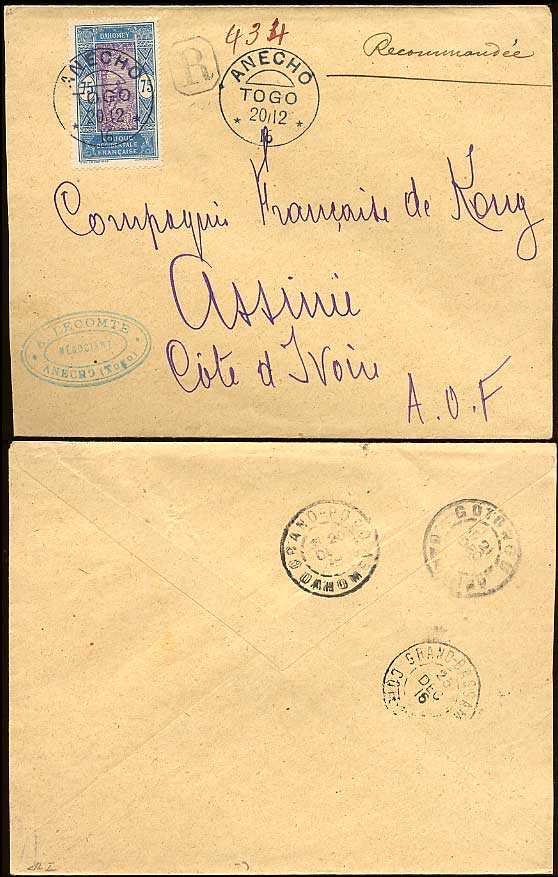 434
Recommandée
DAHOMEY
75 75
AFRIQUE
OCCIDENTALE
FRANÇAISE
ANECHO
TOGO
20/12
R
ANECHO
TOGO
20/12
16
Compagnie Française de Kong
Assinie
Côte d'Ivoire
A.O.F
LECOMTE
NEGOCIANT
ANECHO (TOGO)
GRAND-POPO
DAHOMEY
COTONOU
GRAND-BASSAM
25
DEC
16